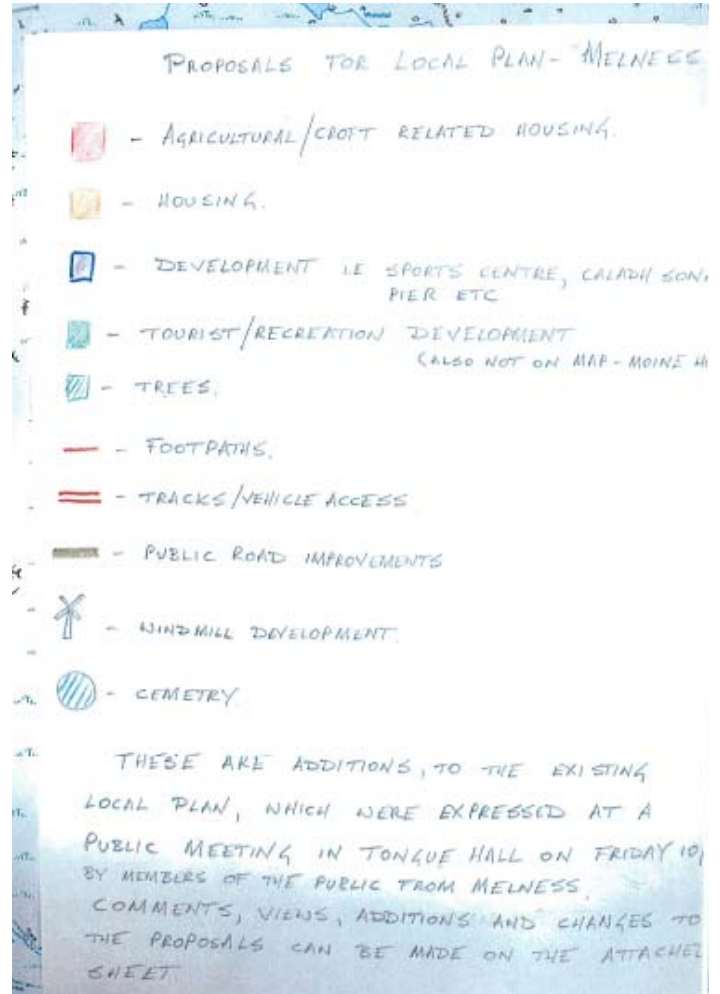 PROPOSALS FOR LOCAL PLAN - MELNESS
- AGRICULTURAL/CROFT RELATED HOUSING.
- HOUSING.
- DEVELOPMENT IE SPORTS CENTRE, CALADH SONA
PIER ETC
- TOURIST/RECREATION DEVELOPMENT
(ALSO NOT ON MAP - MOINE
- TREES.
- FOOTPATHS.
- TRACKS/VEHICLE ACCESS
- PUBLIC ROAD IMPROVEMENTS
- WINDMILL DEVELOPMENT.
- CEMETRY
THESE ARE ADDITIONS, TO THE EXISTING
LOCAL PLAN, WHICH WERE EXPRESSED AT A
PUBLIC MEETING IN TONGUE HALL ON FRIDAY 10
BY MEMBERS OF THE PUBLIC FROM MELNESS.
COMMENTS, VIEWS, ADDITIONS AND CHANGES TO
THE PROPOSALS CAN BE MADE ON THE ATTACHED
SHEET.